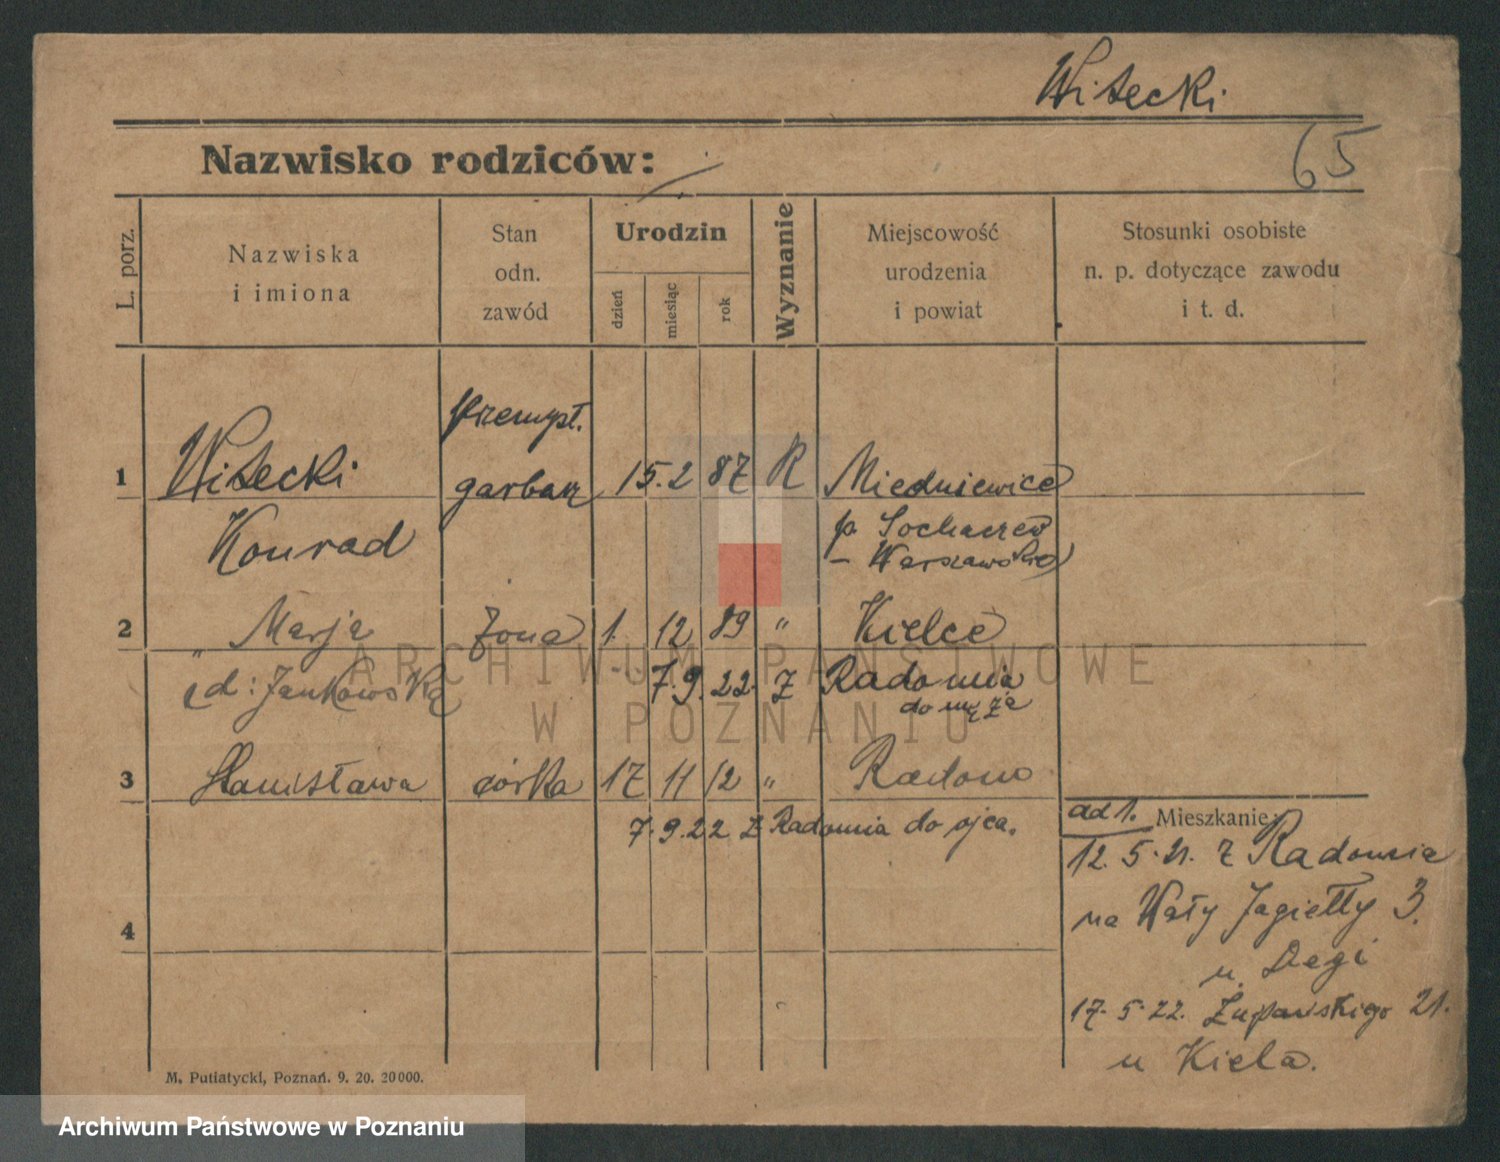 Witecki
65
Nazwisko rodziców:
L. porz.
Nazwiska
i imiona
Stan
odn.
zawód
Urodzin
dzień
miesiąc
rok
Wyznanie
Miejscowość
urodzenia
i powiat
Stosunki osobiste
n. p. dotyczące zawodu
i t. d.
1 Witecki garbarz 15. 2 87 R Miedniewice
Konrad p. Sochaczew
– Warszawskie
2 Marja żona 1. 12 89 " Kielce
7. 9. 22. Z Radomia
do męża
3 Stanisława córka 17 11 12 " Radom
7. 9. 22 Z Radomia do ojca.
4
ad 1. Mieszkanie:
12. 5. 21. z Radomia
na Wały Jagiełły 3.
u Degi
17. 5. 22. Żupańskiego 21.
u Kiela.
M. Putiatycki, Poznań. 9. 20. 20000.
ARCHIWUM PAŃSTWOWE
W POZNANIU
Archiwum Państwowe w Poznaniu